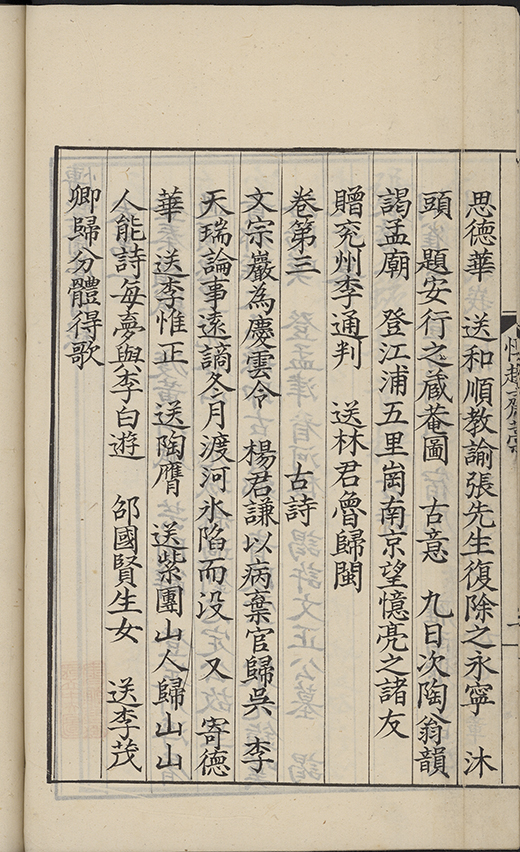 思德華 送和順教諭張先生復除之永寧 沐
頭 題安行之蔵菴圖 古意 九日次陶翁韻
謁孟廟 登江浦五里崗南京望憶亮之諸友
贈兖州李通判 送林君魯歸閩
卷第三 古詩
文宗嚴為慶雲令 楊君謙以病棄官歸吳 李
天瑞論事遠謫冬月渡河氷陷而没 又 寄德
華 送李惟正 送陶膺 送紫團山人歸山山
人能詩每夢與李白遊 邵國賢生女 送李茂
卿歸分體得歌